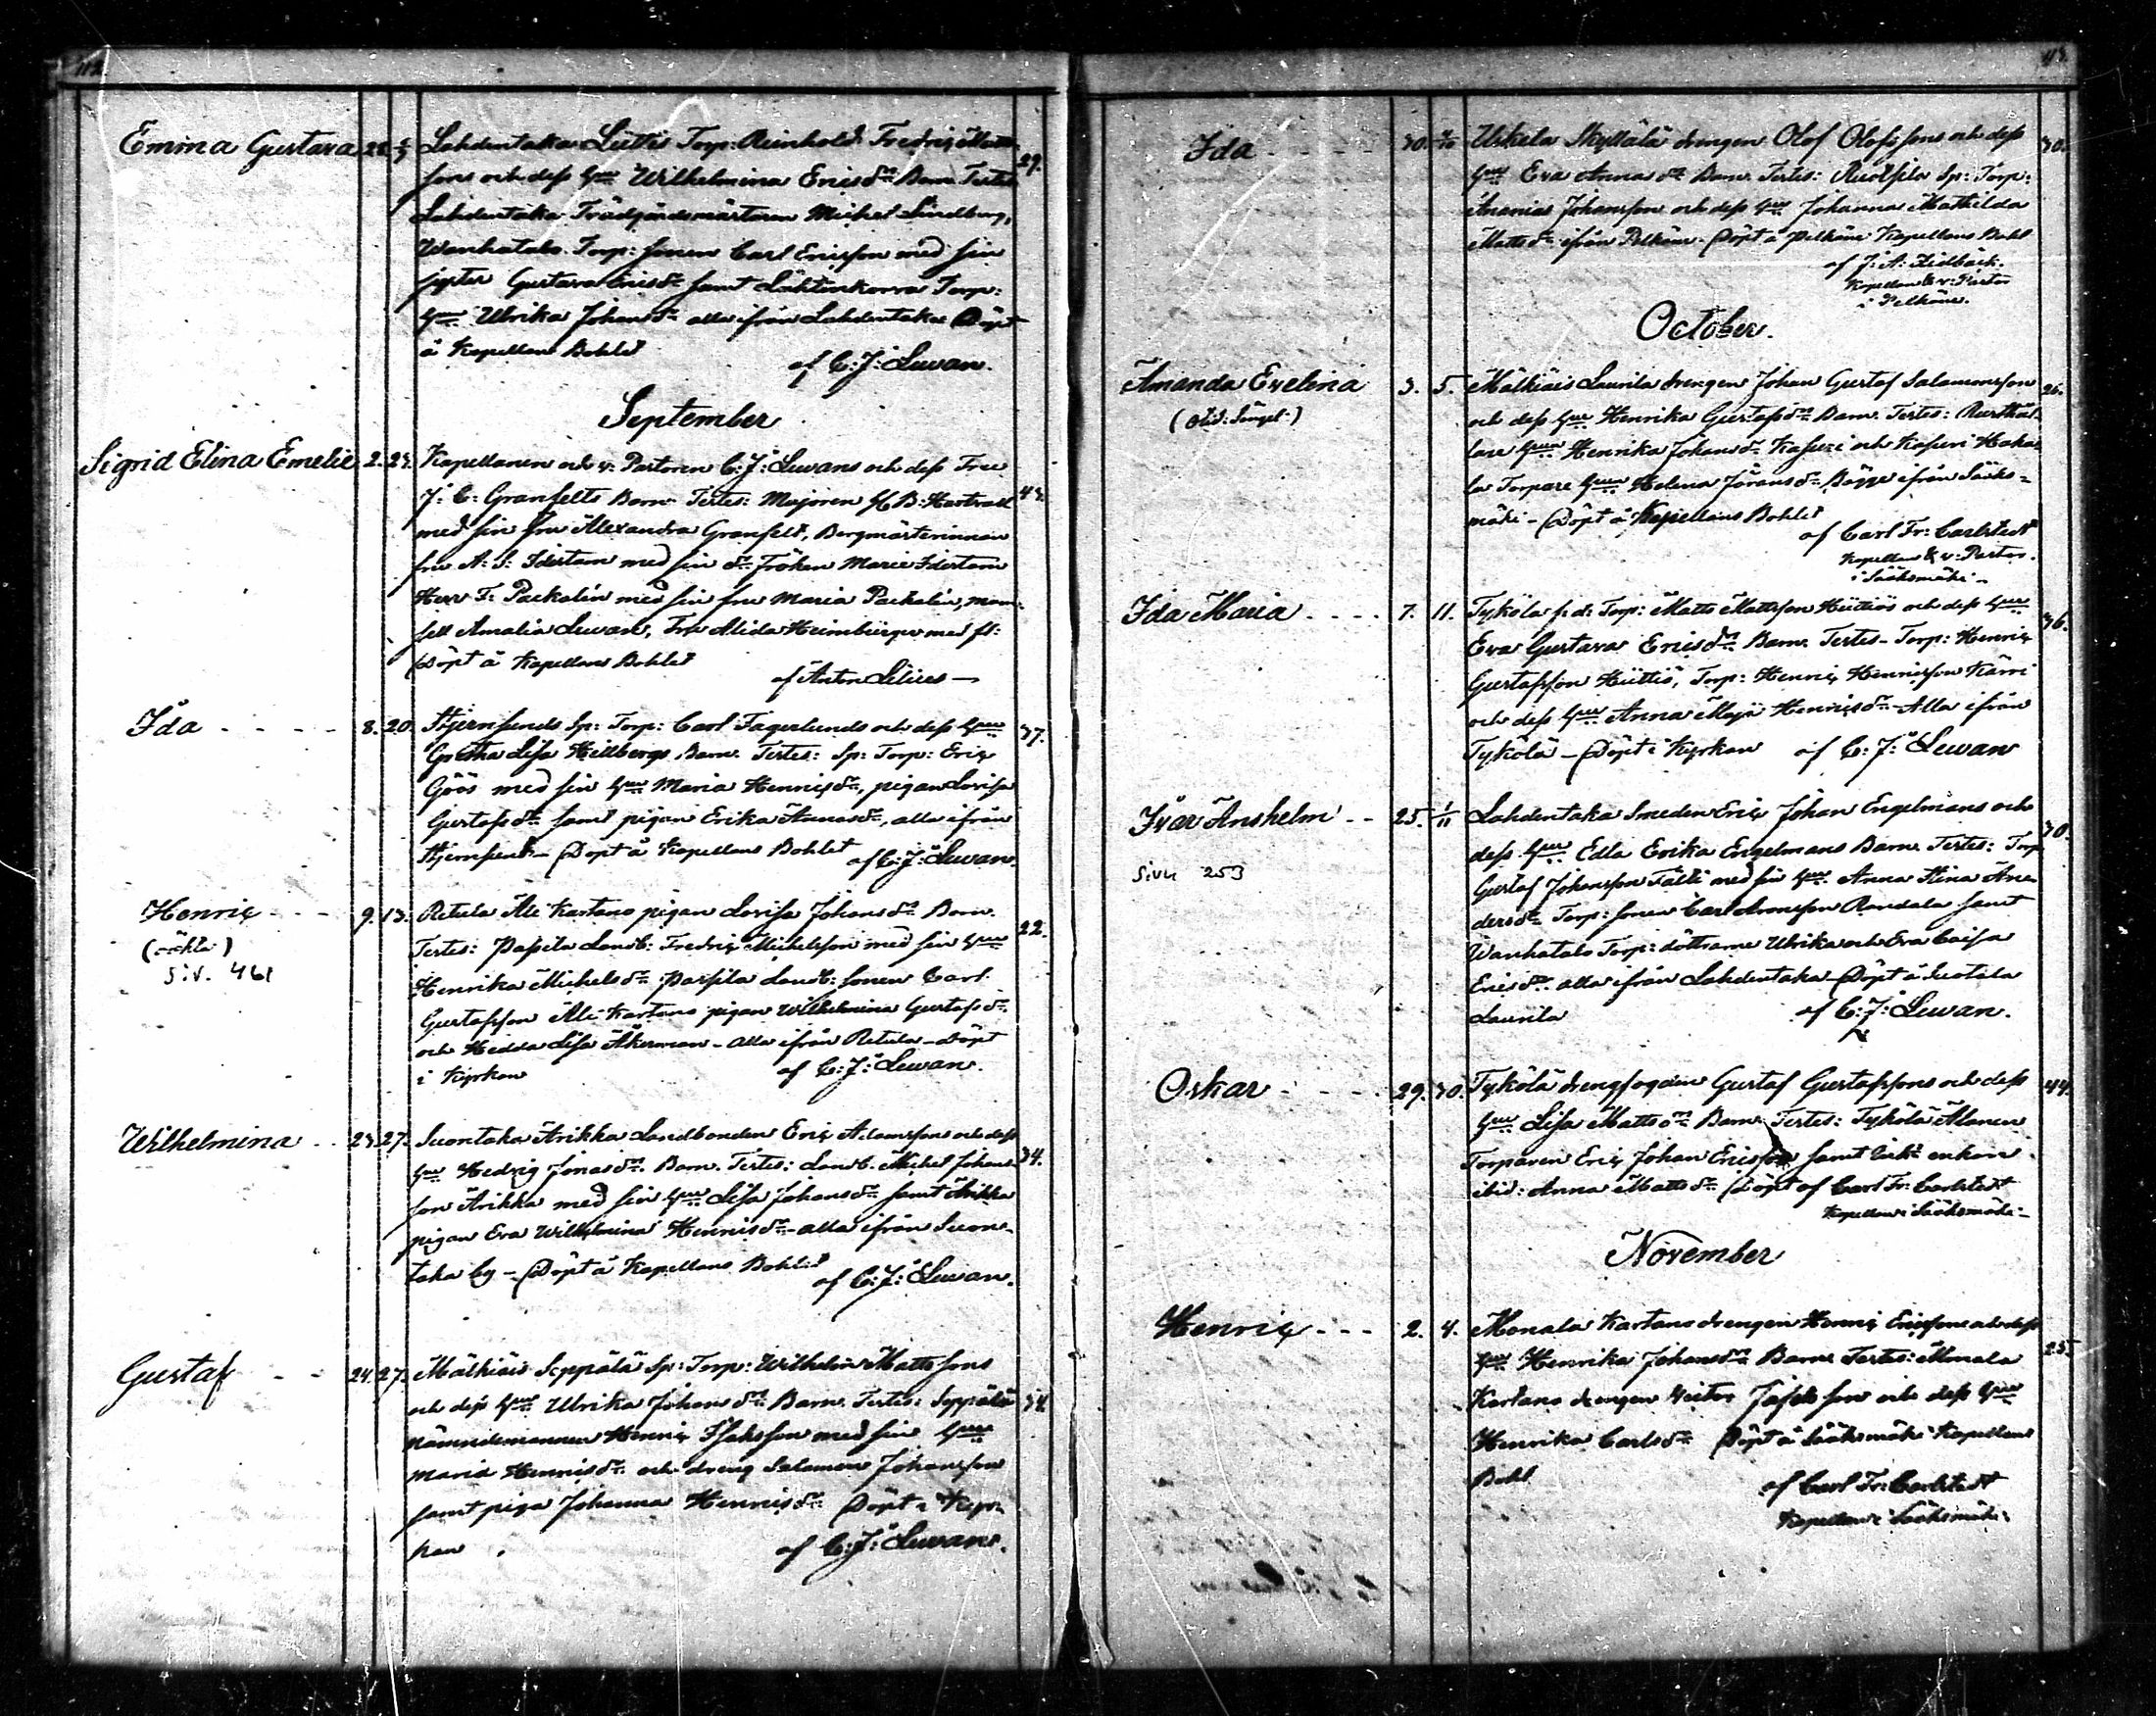 112
Emma Gustava 28. 2/9 Lahdentaka Liettis Torp: Reinhold Fredric Matts- 29.
sons och dess hu Wilhelmina Ericsdr Barn. Testes
Lahdentaka Trädgårdsmästaren Michel Lindberg,
Wanhatalo Torp: sonen Carl Ericsson med sin
syster Gustava Ericsdr samt Torp:
hu Ulrika Johansdr alla ifrån Lahdentaka Döpt
å Kapellans Bohlet
af C: J: Lewan.
September
Sigrid Elina Emelie 2. 23. Kapellanen och v: Pastoren C: J: Lewans och dess Fru
J: C: Granfelts Barn Testes: Majoren B: Hartwall 43.
med sin fru Alexandra Granfelt, Bergmästerinnan
fru A: S: Idestam med sin dr Fröken Marie Idestam
Herr F: Packalén med sin fru Maria Packalén, mam-
sell Amalia Lewan, Fru Alida Heimbürger med fl:
Döpt å Kapellans Bohlet
af Anton Lilius
Ida 8. 20. Stjernsunds Sp: Torp: Carl Fagerlunds och dess hu 37.
Gretha Lisa Hellbergs Barn. Testes: Sp: Torp: Eric
Göös med sin hu Maria Henricsdr, pigan Lovisa
Gustafsdr samt pigan Erika Annasdr, alla ifrån
Stjernsund - Döpt å Kapellans Bohlet
af C: J: Lewan.
Henric 9. 13. Retula Ali Kartano pigan Lovisa Johansdr Barn. 22.
(oäkta) Testes: Pappila Landb: Fredric Michelsson med sin hu
Siv. 461 Henrika Michelsdr Landb: sonen Carl
Gustafsson Ali Kartano pigan Wilhelmina Gustafsdr
och Hedda Lisa Åkerman - alla ifrån Retula - Döpt
i Kyrkan
af C: J: Lewan.
Wilhelmina 23. 27. Suontaka Arikka Landbonden Eric Adamssons och dess 34.
hu Hedvig Jonasdr Barn. Testes: Landb. Michel Johans-
son Arikka med sin hu Lisa Johansdr samt Arikka
pigan Eva Wilhelmina Henricsdr - alla ifrån Suon-
taka by - Döpt å Kapellans Bohlet
af C: J: Lewan.
Gustaf 24. 27. Mälkiäis Seppälä Sp: Torp: Wilhelm Mattssons
och dess hu Ulrika Johansdr Barn. Testes: Seppälä 34.
nämndemannen Henric Isaksson med sin hu
Maria Henricsdr och dreng Salomon Johansson
samt piga Johanna Henricsdr Döpt i Kyr-
kan
af C: J: Lewan.
113.
Ida 30. 4/10 Uskela Skyttälä drengen Olof Olofssons och dess 30.
hu Eva Annasdr Barn. Testes: Sp: Torp:
Ananias Johansson och dess hu Johanna Mathilda
Mattsdr ifrån Pelkäne. Döpt å Pelkäne Kapellans Bohl
af J: A: Lidbäck.
Kapellan & v: Pastor
i Pelkäne.
October.
Amanda Evelina 3. 5. Mälkiäis Laurila drengen Johan Gustaf Salamonsson 26.
och dess hu Henrika Gustafsdr Barn. Testes:
hun Henrika Johansdr Kasuri och Kasuri Haka-
la Torpare hun Helena Göransdr Bägge ifrån Sääks-
mäki - Döpt å Kapellans Bohlet
af Carl Fr: Carlstedt
Kapellan & v: Pastor
i Sääksmäki -
Ida Maria 7. 11. Tykölä Torp: Matts Mattsson Hiittiös och dess hu 36.
Eva Gustava Ericsdr Barn. Testes - Torp: Henric
Gustafsson Hiittiö, Torp: Henric Henricsson Kärri
och dess hu Anna Maja Henricsdr - Alla ifrån
Tykölä - Döpt i Kyrkan af C: J: Lewan
Ivar Anshelm 25. 1/11 Lahdentaka Smeden Eric Johan Engelmans och 30.
dess hu Edla Erika Engelmans Barn. Testes: Torp
Sivu 253 Gustaf Johansson Tälli med sin hu Anna Stina An-
dersdr Torp: sonen Carl Aronsson Randala samt
Wanhatalo Torp: döttrarne Ulrika och Eva Caisa
Ericsdr alla ifrån Lahdentaka - Döpt å
Laurila
af C: J: Lewan.
Oskar 29. 30. Tykölä drengfogden Gustaf Gustafssons och dess 44.
hu Lisa Mattsdr Barn. Testes: Tykölä Alanen
Torparen Eric Johan Ericsson samt enkan
ibid: Anna Mattsdr Döpt af Carl Fr: Carlstedt
Kapellan i Sääksmäki -
November
Henric 2. 4. Monala Kartano drengen Henric Ericssons och dess 25.
hu Henrika Johansdr Barn Testes: Monala
Kartano drengen och dess hu
Henrika Carlsdr Döpt å Sääksmäki Kapellans
Bohl
af Carl Fr: Carlstedt
Kapellan i Sääksmäki